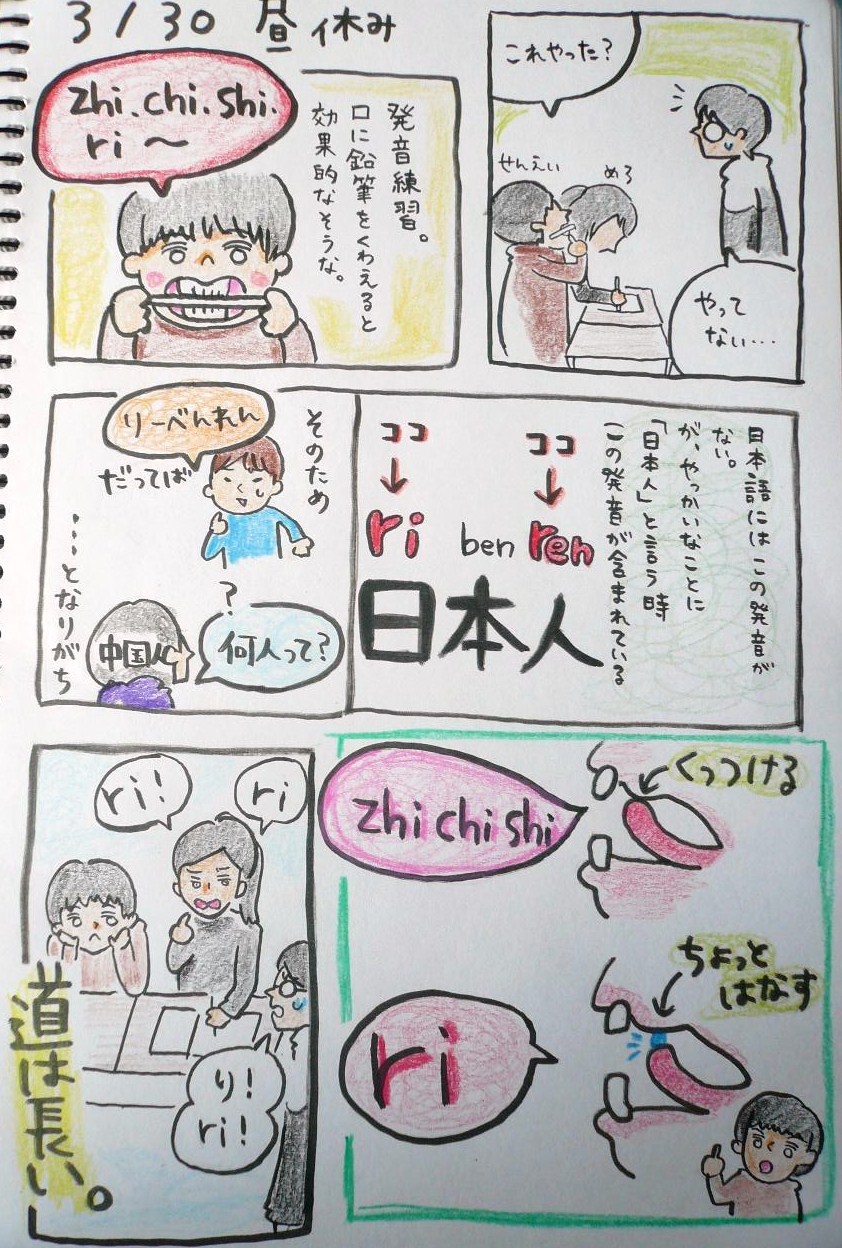 3/30 昼休み
これやった?
せんえい
めろ
やって
ない…
zhi.chi.shi.
ri〜
発音練習。
口に鉛筆をくわえると
効果的なそうな。
日本語にはこの発音が
ない。
が、やっかいなことに
「日本人」と言う時
この発音が含まれている
ココ
ココ
ri ben ren
日本人
そのため
りーべんれん
だってば
?
何人って?
中国人
…となりがち
zhi chi shi
くっつける
ri
ちょっと
はなす
ri
ri!
り!
ri!
道は長い。